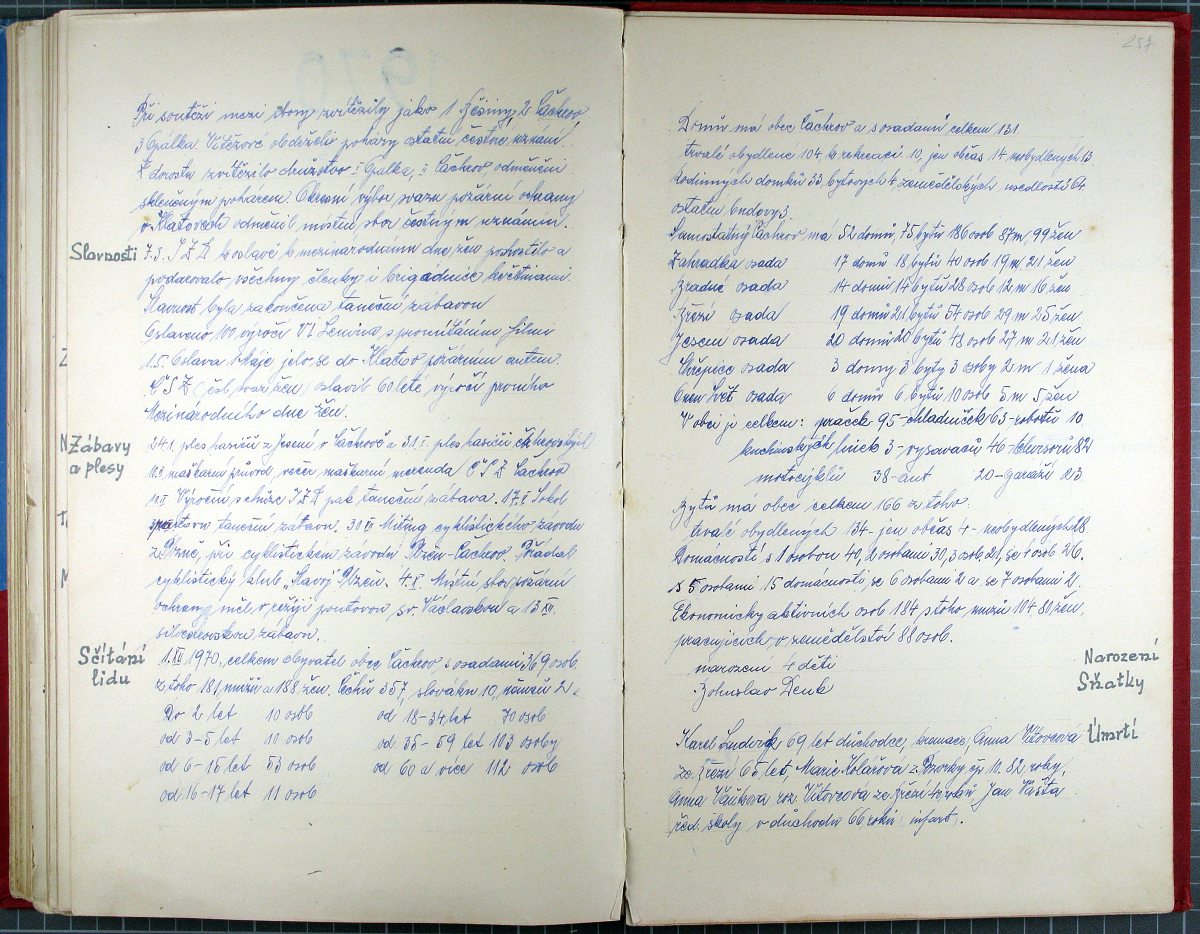 Při soutěži mezi sbory zvítězily jako 1 Běšiny, 2 Čachrov
3 Opálka. Vítězové obdrželi poháry ostatní čestné uznání.
Z dorostu zvítězilo družstvo I Opálka, II Čachrov, odměněni
skleněným pohárem. Okresní výbor svazu požární ochrany
v Klatovech odměnil místní sbor čestným uznáním.
Slavnosti 7.3. JZD k oslavě k mezinárodnímu dne žen pohostilo a
podarovalo všechny členky i brigádnice květinami.
Slavnost byla zakončena taneční zábavou
Oslaveno 100 výročí V I Lenina s promítáním filmu
1.5. Oslava 1 Máje jelo se do Klatov požárním autem.
ČSŽ (čsl. svaz žen) oslavil 60 leté výročí prvního
Mezinárodního dne žen.
Zábavy
a plesy
24.I. ples hasičů z Jesení v Čachrově a 31.I. ples hasičů
maškarní průvod večer maškarní merenda ČSŽ Čachrov
Výroční schůze JZD pak taneční zábava. Sokol
taneční zábavu, Miting cyklistického závodu
z Plzně, při cyklistickém závodu Plzeň-Čachrov. Pořádal
cyklistický klub "Slavoj" Plzeň. 4.X Místní sbor požární
ochrany měl v režii pouťovou sv. Václavskou a 13 XII.
silvestrovskou zábavu.
Sčítání
lidu
1.XII 1970, celkem obyvatel obec Čachrov s osadami 369 osob
z toho 181 mužů a 188 žen. Čechů 357, slováků 10, němců 2.
Do 2 let 10 osob od 18-34 let 70 osob
od 3-5 let 10 osob od 35-59 let 103 osoby
od 6-15 let 53 osob od 60 a více 112 osob
od 16-17 let 11 osob
257
Domů má obec Čachrov a s osadami celkem 131.
trvale obydlené 104 k rekreaci 10, jen občas 14 neobydlených 13
Rodinných domků 33, bytových 4 zemědělských usedlostí 64
ostatní budovy 3.
Samostatný Čachrov má 52 domů, 75 bytů 186 osob 87 m 99 žen
Zahrádka osada 17 domů 18 bytů 40 osob 19 m 21 žen
Bradné osada 14 domů 14 bytů 28 osob 12 m 16 žen
Březí osada 19 domů 21 bytů 54 osob 29 m 25 žen
Jesení osada 20 domů 20 bytů 48 osob 27 m 21 žen
Chřepice osada 3 domy 3 byty 3 osoby 2 m 1 žena
Onen Svět osada 6 domů 6 bytů 10 osob 5 m 5 žen
V obci je celkem: praček 95 - chladniček 63 - robotů 10
kuchyňských linek 3 - vysavačů 46 - televisorů 82
motocyklů 38 - aut 20 - garáží 23
Bytů má obec celkem 166 z toho:
trvale obydlených 134 - jen občas 4 - neobydlených 28
Domácností s 1 osobou 40, 2 osobami 30, 3 osob 21, se 4 osob 26.
s 5 osobami 15 domácností, se 6 osobami 2 a se 7 osobami 2.
Ekonomicky aktivních osob 184 s toho mužů 104 80 žen,
pracujících v zemědělství 88 osob.
Narození narození 4 děti
Sňatky Bohuslav Denk
Karel Ludvík 69 let důchodce, kremace, Anna Vítovcová Úmrtí
ze Březí 65 let, Marie Kolářová z čp. 10. 82 roky,
Anna roz. Vítovcová ze Březí Jan Vašta
řed. školy v důchodu 66 roků infart.